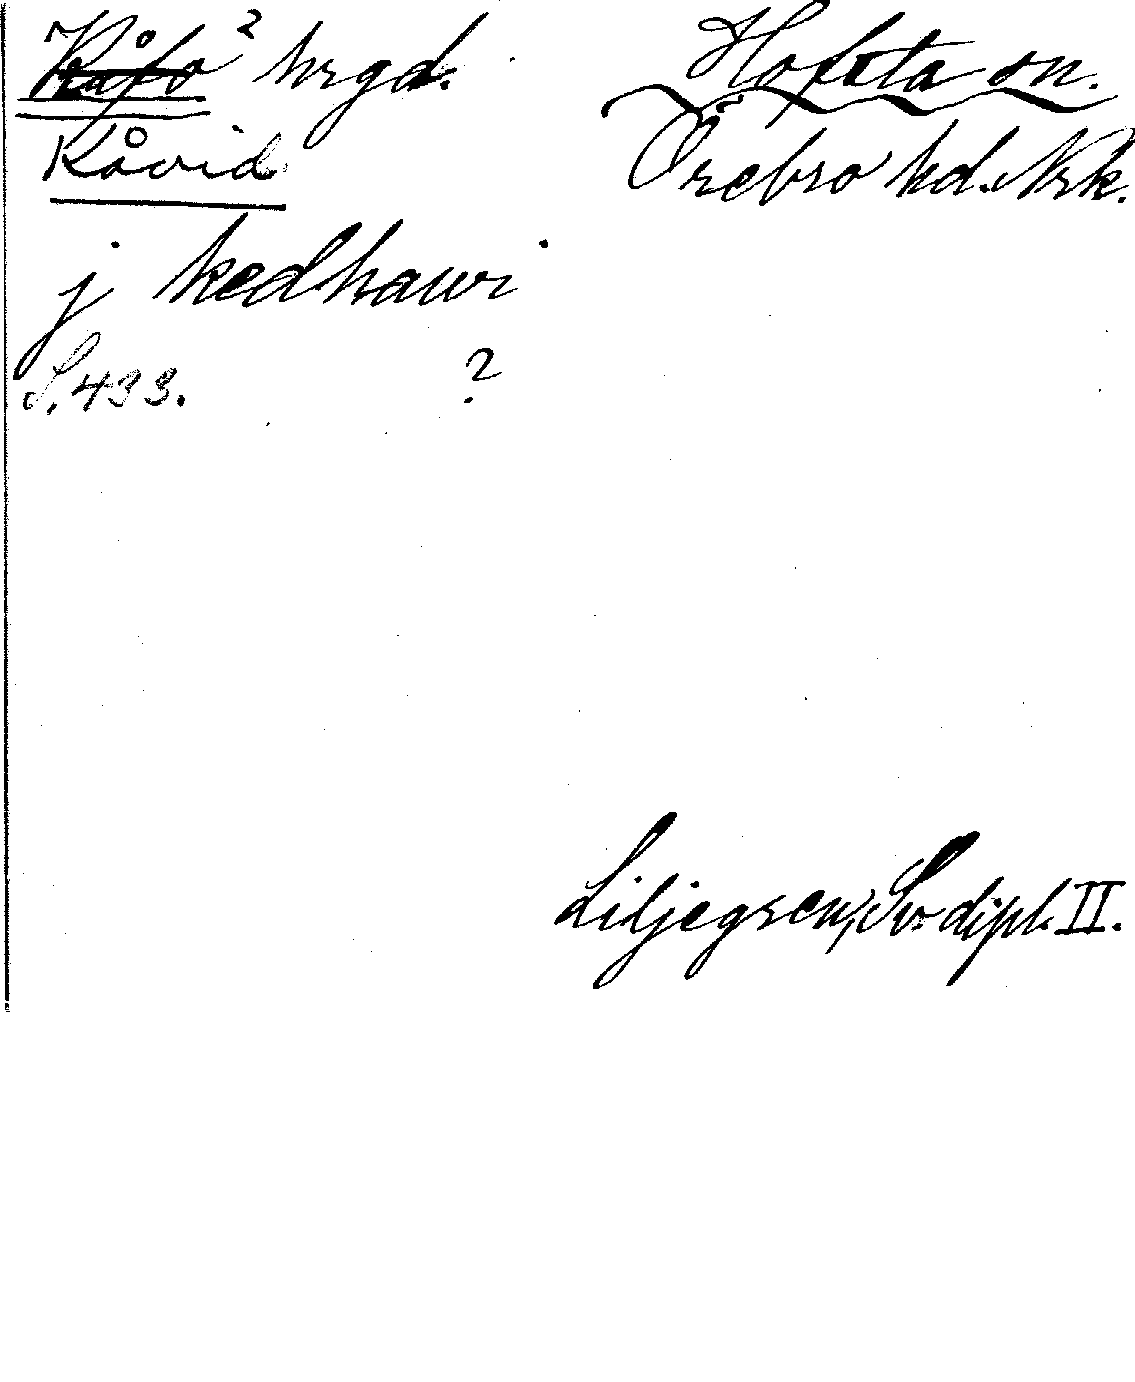 Kåfö ? hrgd. Hofsta sn.
Kåvid Örebro hd. Nrk.
j kedhawi
S. 433. ?
Liljegren, Sv. dipl. II.